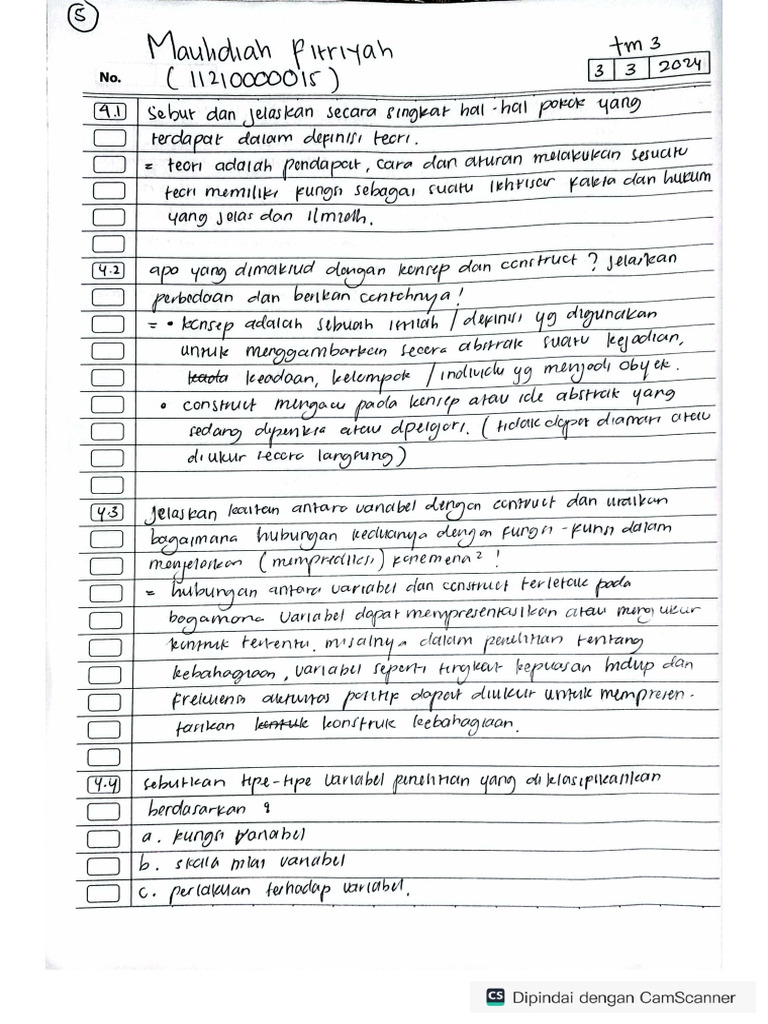 5
Maulidiah Fitriyah
tm 3
No.
(11210000015)
3 3 2024
4.1 Sebut dan jelaskan secara singkat hal-hal pokok yang
terdapat dalam definisi teori.
= teori adalah pendapat, cara dan aturan melakukan sesuatu
teori memiliki fungsi sebagai suatu ikhtisar fakta dan hukum
yang jelas dan ilmiah.
4.2 apa yang dimaksud dengan konsep dan construct ? jelaskan
perbedaan dan berikan contohnya !
= • konsep adalah sebuah istilah / definisi yg digunakan
untuk menggambarkan secara abstrak suatu kejadian,
keadaan, kelompok / individu yg menjadi obyek.
• construct mengacu pada konsep atau ide abstrak yang
sedang diperiksa atau dipelajari. (tidak dapat diamati atau
diukur secara langsung)
4.3 jelaskan kaitan antara variabel dengan contruct dan uraikan
bagaimana hubungan keduanya dengan fungsi-funsi dalam
menjelaskan (memprediksi) fenomena² !
= hubungan antara variabel dan construct terletak pada
bagamana variabel dapat mempresentasikan atau mengukur
kontruk tertentu. misalnya dalam penelitian tentang
kebahagiaan, variabel seperti tingkat kepuasan hidup dan
frekuensi aktivitas positif dapat diukur untuk mempresen-
tasikan kontuk konstruk kebahagiaan.
4.4 sebutkan tipe-tipe variabel penelitian yang diklasifikasikan
berdasarkan :
a. fungsi variabel
b. skala nilai variabel
c. perlakuan terhadap variabel.
CS Dipindai dengan CamScanner